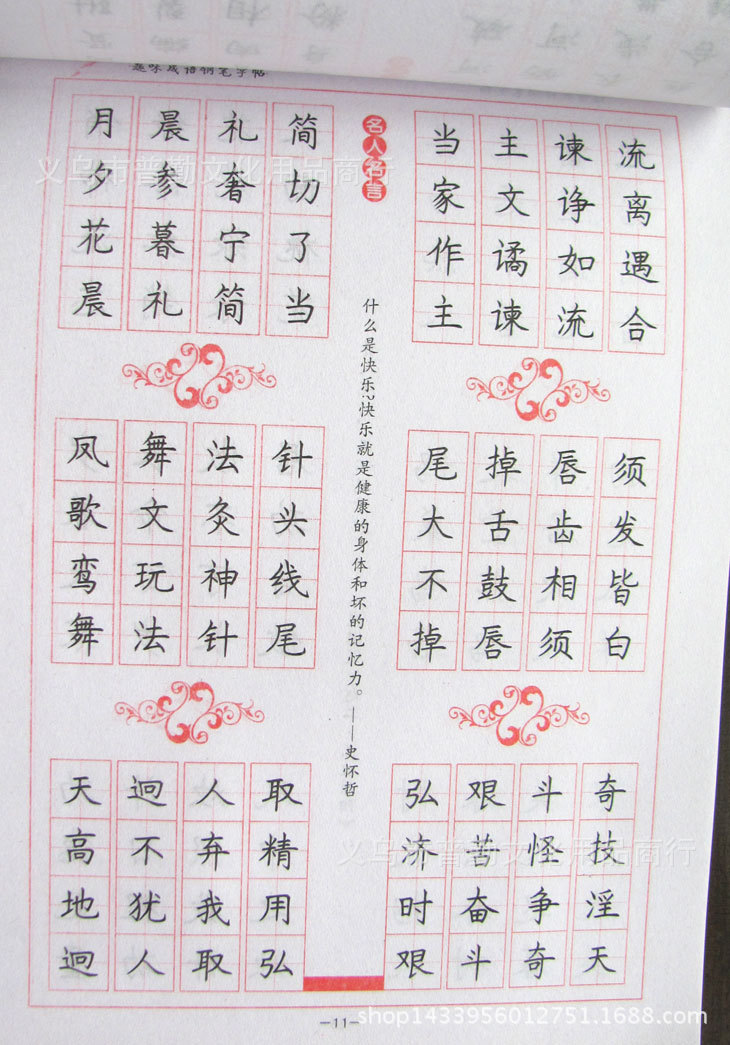 趣味成语钢笔字帖
月夕花晨
晨参暮礼
礼奢宁简
简切了当
名人名言
什么是快乐?快乐就是健康的身体和坏的记忆力。——史怀哲
当家作主
主文谲谏
谏诤如流
流离遇合
凤歌鸾舞
舞文玩法
法灸神针
针头线尾
尾大不掉
掉舌鼓唇
唇齿相须
须发皆白
天高地迥
迥不犹人
人弃我取
取精用弘
弘济时艰
艰苦奋斗
斗怪争奇
奇技淫天
—11—
义乌市普勤文化用品商行
义乌市普勤文化用品商行
shop1433956012751.1688.com